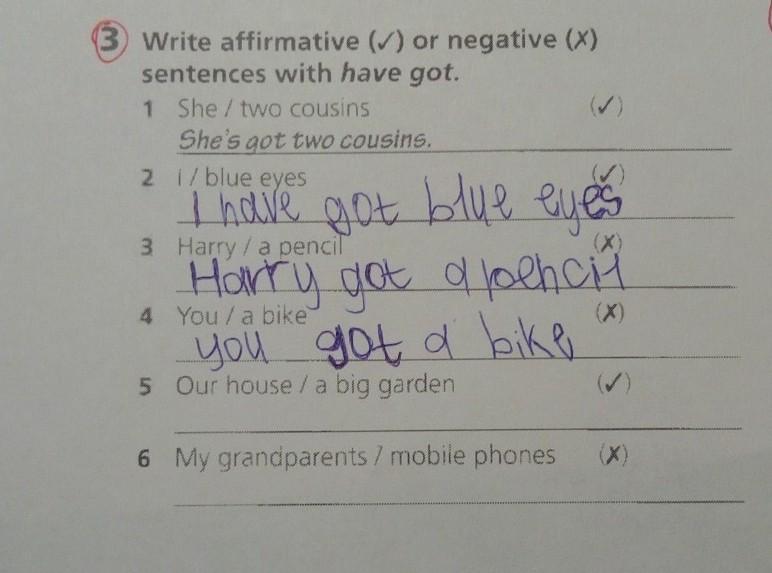 3 Write affirmative (✓) or negative (✗)
sentences with have got.
1 She / two cousins (✓)
She's got two cousins.
2 I / blue eyes (✓)
I have got blue eyes
3 Harry / a pencil (✗)
Harry got a pencil
4 You / a bike (✗)
you got a bike
5 Our house / a big garden (✓)
6 My grandparents / mobile phones (✗)